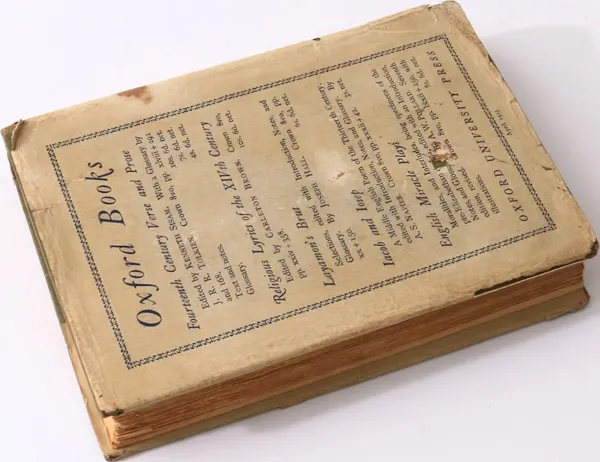 Oxford Books
Fourteenth Century Verse and Prose
Edited by KENNETH SISAM. With a Glossary by
J. R. R. TOLKIEN. Crown 8vo, pp. xlviii + 292
and 168. 7s. 6d. net.
Text and notes, 6s. 6d. net.
Glossary, net.
Religious Lyrics of the XIVth Century
Edited by CARLETON BROWN. Crown 8vo,
pp. xxiv + 358. 10s. 6d. net.
Layamon's Brut
Selections, edited with Introduction, Notes, and
Glossary. By JOSEPH HALL. Crown 8vo, pp.
xx + 150. 6s. 6d. net.
Iacob and Iosep
A Middle English Poem of the Thirteenth Century,
edited with Introduction, Notes, and Glossary. By
A. S. NAPIER. Crown 8vo, pp. xxxii + 42. 3s. net.
English Miracle Plays
Moralities, and Interludes, being specimens of the
pre-Elizabethan Drama, edited with an Introduction,
Notes, and Glossary, by A. W. POLLARD. Seventh
edition, revised. Crown 8vo, pp. lxxii + 250, with
illustrations. 8s. 6d. net.
OXFORD UNIVERSITY PRESS
April